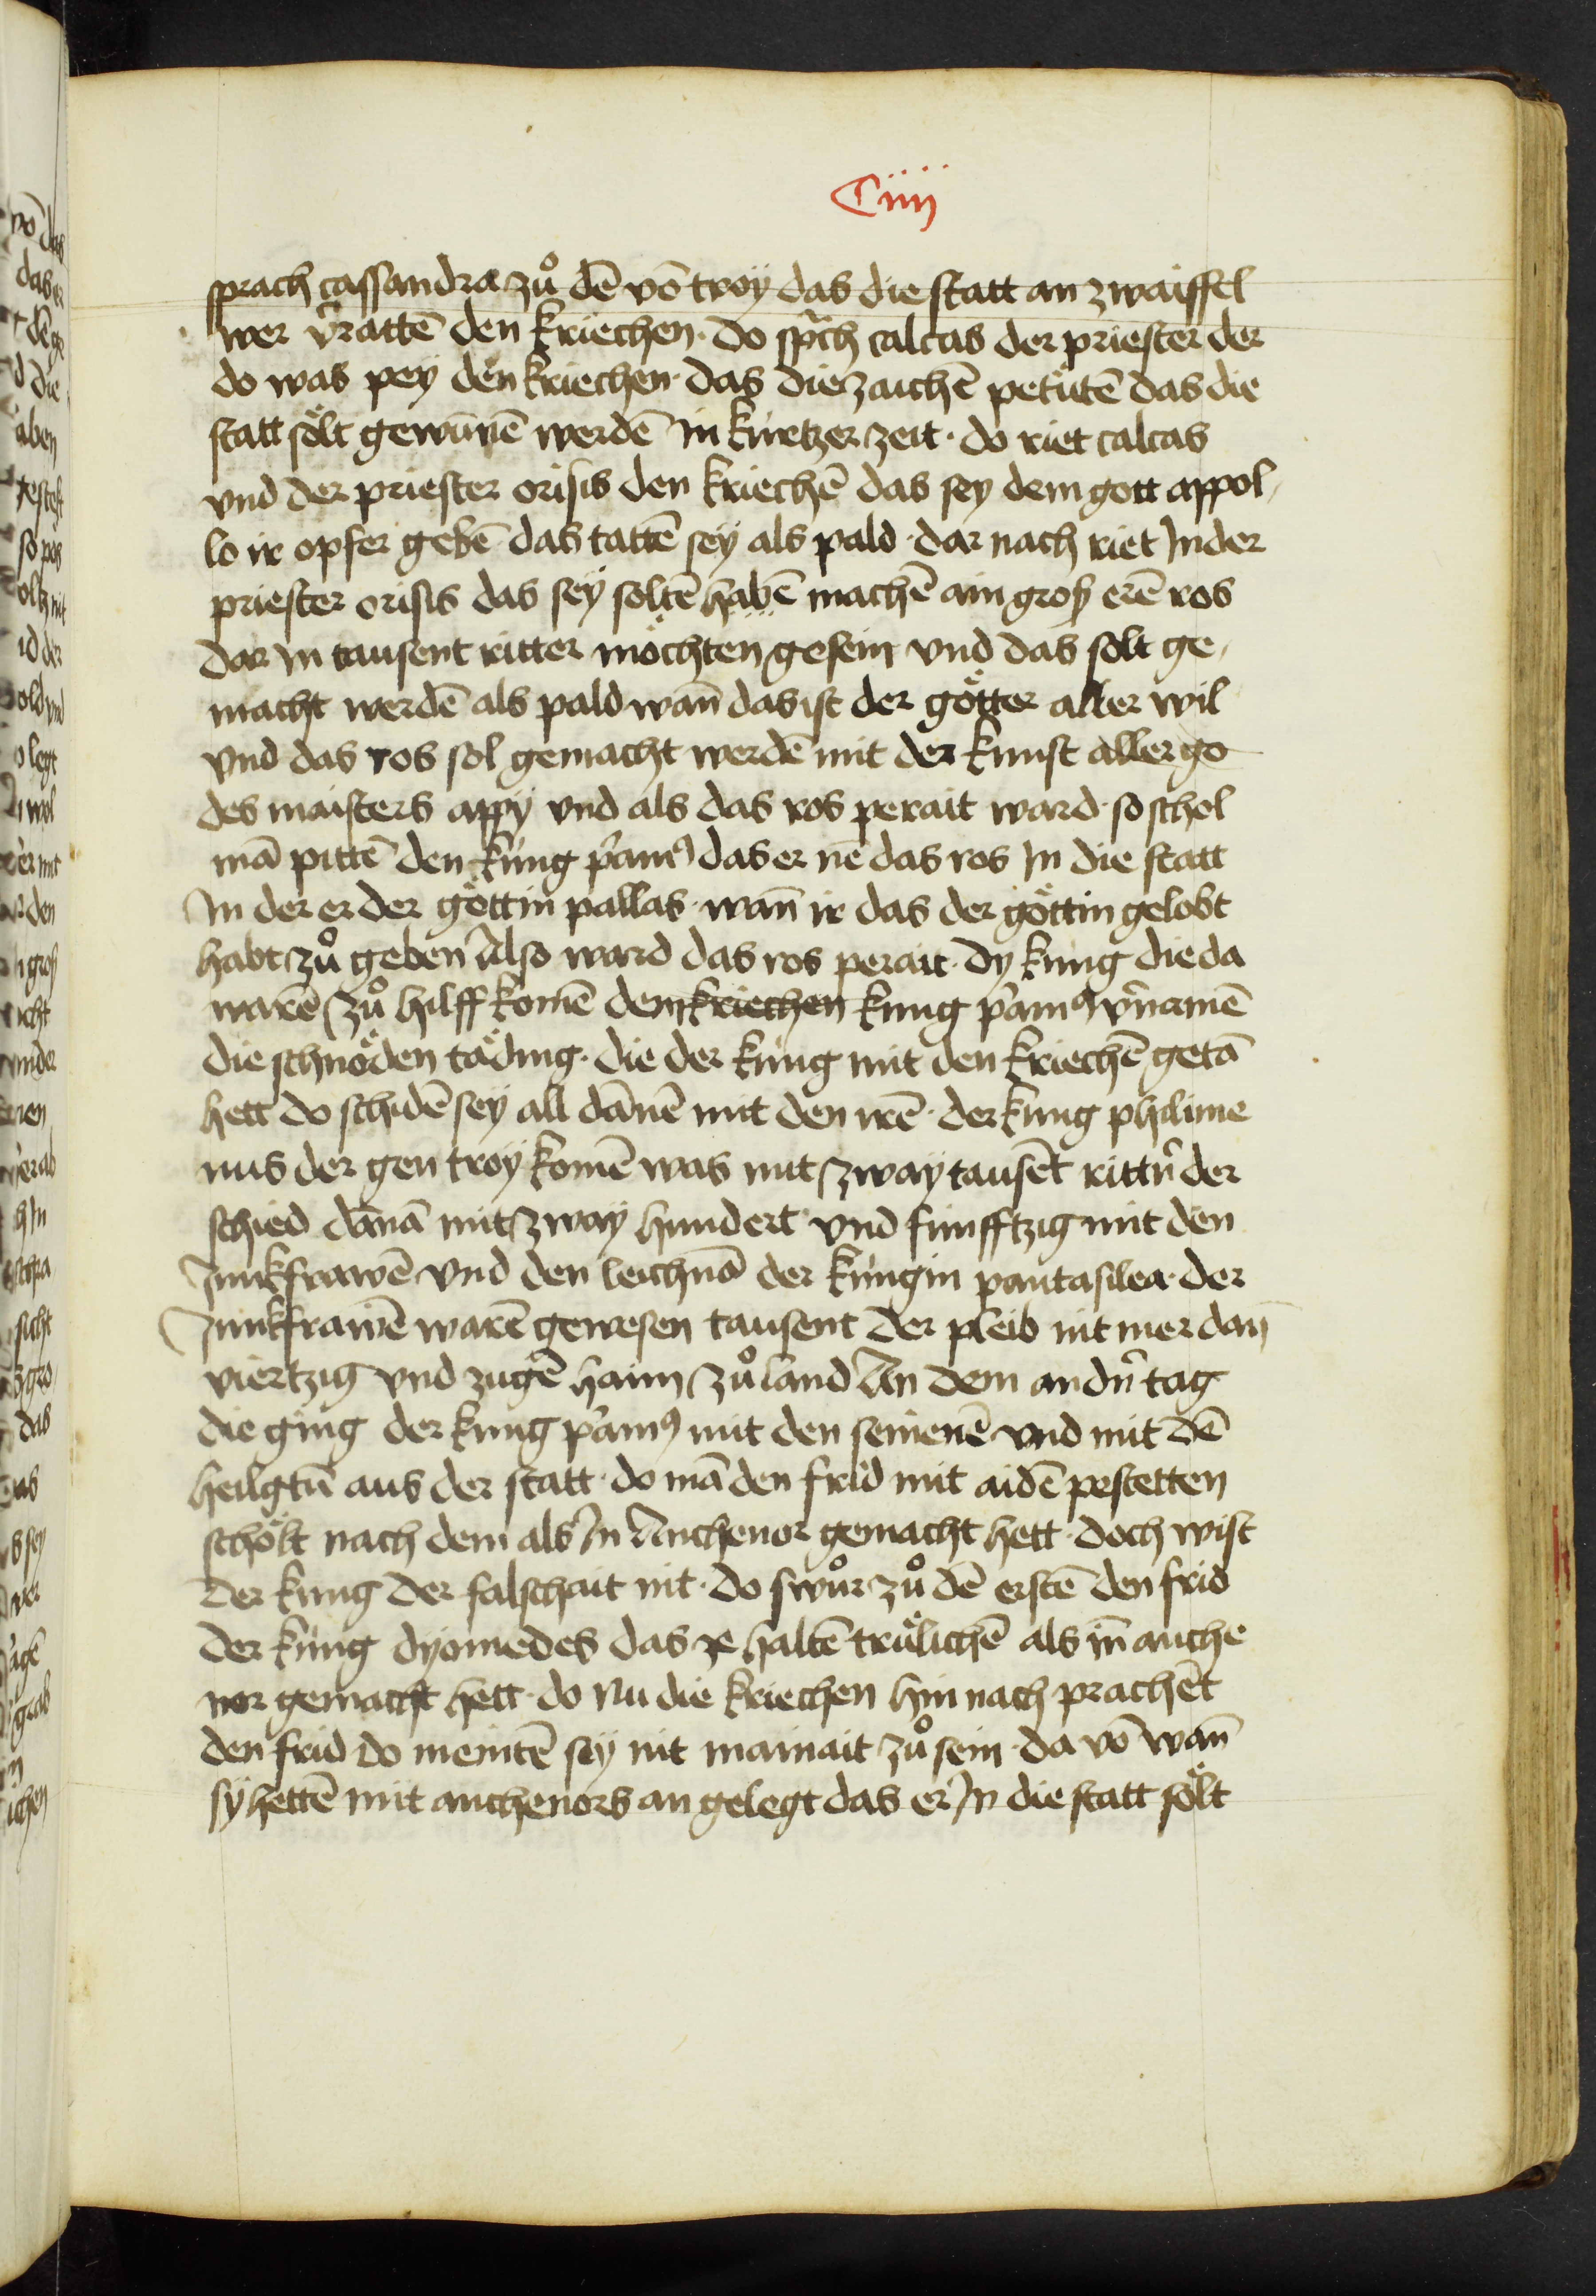 Ciiij
sprach cassandra zů dē vō troÿ das die statt an zwaiffel
wer v̉rattē den kriechen · do sp̄ch calcas der priester der
do was peÿ den kriechen · das die zaichē petütē das die
statt sölt gewūnē werdē in kürtzer zeit · do riet calcas
vnd der priester orisis den kriechē das sey dem gott appol
lo ir opfer gebē das tattē seÿ als pald · dar nach riet In der
priester orisis das seÿ soltē habē machē ain groß erē ros
dar In tausent ritter möchten gesein vnd das solt ge
macht werdē als pald wan̄ das ist der götter aller wil
vnd das ros sol gemacht werdē mit der kunst aller go
des maisters appÿ vnd als das ros perait ward · so schol
mā pittē den küng p̉am9 das er nē das ros In die statt
In der er der göttin pallas · wan̄ ir das der göttin gelobt
habt zů geben Also ward das ros perait · dy küng die da
warē zů hilff komē dem kriechen kung p̉am9 v̉namē
die schnöden täding · die der küng mit den kriechē getā
hett do schidē seÿ all dānē mit den irē · der küng philime
nus der gen troÿ komē was mit zwaÿ tausēt rittn̉ der
schied dānā mit zwaÿ hundert vnd fünfftzig mit den
Junkfrawē vnd den leichnā der küngin pantasilea · der
Junkfrawē warē gewesen tausent der pleib nit mer dan
viertzig vnd zugē haim zů land An dem andn̉ tag
die ging der kung p̉am9 mit den seinenē vnd mit dē
heilgtū aus der statt · do mā den frid mit aidē pestetten
schölt nach dem als In Anthenor gemacht hett · doch wist
der kung der falschait nit · do swůr zů dē erstē den frid
der küng dyomedes das ze haltē trülichē als in̄ anthe
nor gemacht hett · do nu die kriechen hin nach prachēt
den frid do meintē sÿ nit mainait zů sein · da vō wan̄
sÿ hettē mit anthenors an gelegt das er In die statt sölt